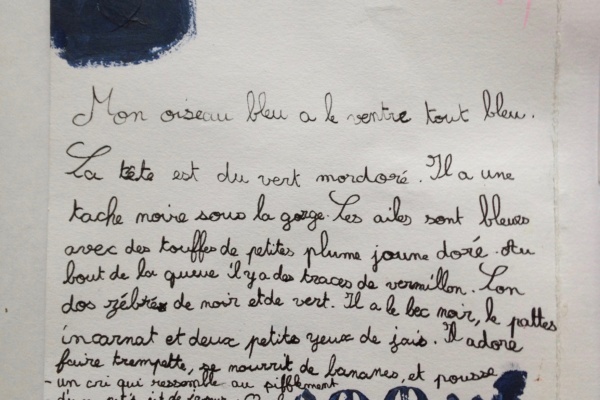 Mon oiseau bleu a le ventre tout bleu.
La tête est du vert mordoré. Il a une
tache noire sous la gorge. Les ailes sont bleues
avec des touffes de petites plume jaune doré. Au
bout de la queue il y a des traces de vermillon. Son
dos zébres de noir et de vert. Il a le bec noir, le pattes
incarnat et deux petits yeux de jais. Il adore
faire trempette, se nourrit de bananes, et pousse
un cri qui ressemble au sifflement